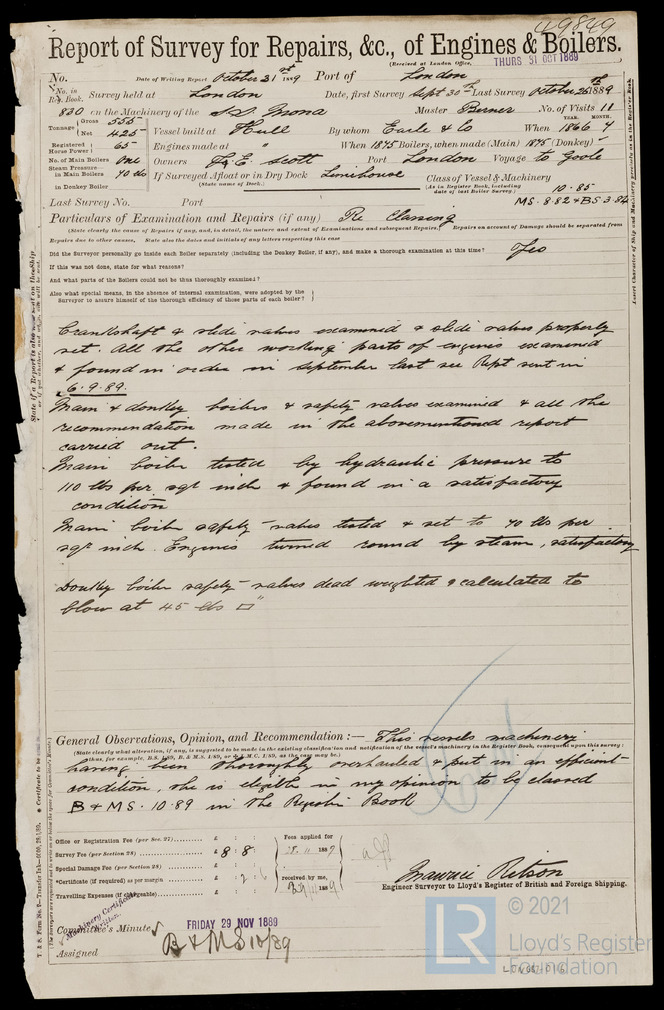 49849
Report of Survey for Repairs, &c., of Engines & Boilers.
(Received at London Office, THURS 31 OCT 1889
No. Date of Writing Report October 31st 1889 Port of London
No. in Reg. Book. Survey held at London Date, first Survey Sept 30th Last Survey October 26th 1889
830 on the Machinery of the S.S. Mona Master Burner No. of Visits 11
Tonnage Gross 555 Net 425 Vessel built at Hull By whom Earle & Co When YEAR. 1866 MONTH. 4
Registered Horse Power 65 Engines made at " When 1875 Boilers, when made (Main) 1875 (Donkey) -
No. of Main Boilers One Owners E. Scott Port London Voyage to Goole
Steam Pressure in Main Boilers 70 lbs If Surveyed Afloat or in Dry Dock Limehouse
(State name of Dock.)
in Donkey Boiler
Class of Vessel & Machinery
(As in Register Book, including date of last Boiler Survey.) 10.85
Last Survey No. Port MS.8.82 & BS 3.84
Particulars of Examination and Repairs (if any) Re Classing
(State clearly the cause of Repairs if any, and, in detail, the nature and extent of Examinations and subsequent Repairs.) Repairs on account of Damage should be separated from
Repairs due to other causes. State also the dates and initials of any letters respecting this case
Did the Surveyor personally go inside each Boiler separately (including the Donkey Boiler, if any), and make a thorough examination at this time? Yes
If this was not done, state for what reasons?
And what parts of the Boilers could not be thus thoroughly examined?
Also what special means, in the absence of internal examination, were adopted by the
Surveyor to assure himself of the thorough efficiency of those parts of each boiler?
Crankshaft & slide valves examined & slide valves properly
set. All the other working parts of engines examined
& found in order in september last see Rept sent in
6.9.89.
Main & donkey boilers & safety valves examined & all the
recommendation made in the abovementioned report
carried out.
Main boiler tested by hydraulic pressure to
110 lbs per sqr inch & found in a satisfactory
condition
Main boiler safety-valves tested & set to 70 lbs per
sqr inch. Engines turned round by steam, satisfactory
Donkey boiler safety-valves dead weighted & calculated to
blow at 45 lbs □"
General Observations, Opinion, and Recommendation :— This vessels machinery
(State clearly what alteration, if any, is suggested to be made in the existing classification and notification of the vessel's machinery in the Register Book, consequent upon this survey:
thus, for example, B.S. 1/89, B. & M.S. 1/89, or L.M.C. 1/89, as the case may be.)
having been thoroughly overhauled & put in an efficient
condition, she is eligible in my opinion to be classed
B & MS. 10.89 in the Register Book
Office or Registration Fee (per Sec. 27) £ : : Fees applied for
Survey Fee (per Section 28) £ 8 : 8 : 1889
Special Damage Fee (per Section 28) £ : :
*Certificate (if required) as per margin £ : 2 : 6 received by me,
Travelling Expenses (if chargeable) £ : : 1889
Maurice Ritson
Engineer Surveyor to Lloyd's Register of British and Foreign Shipping.
Machinery Certificate Written.
Committee's Minute FRIDAY 29 NOV 1889
B & MS 10/89
Assigned
© 2021
LR Lloyd's Register
Foundation